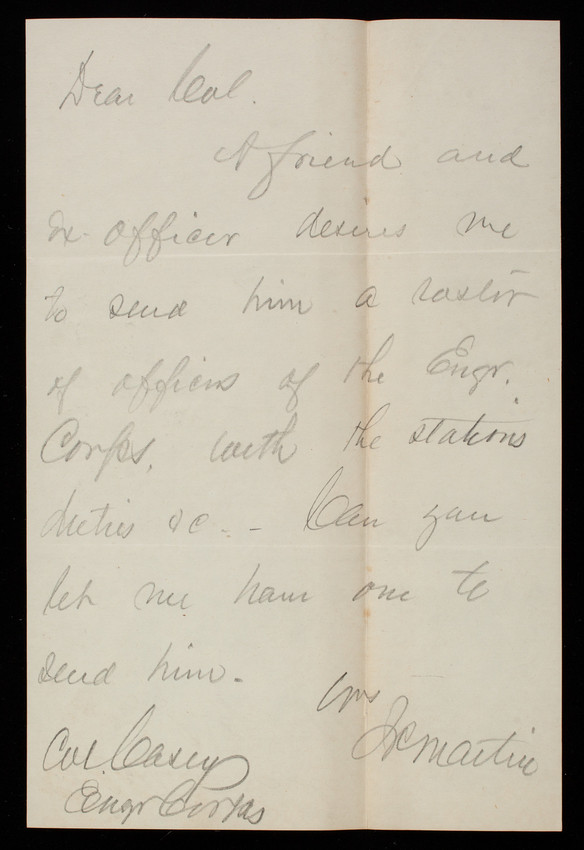 Dear Col.
A friend and
ex-officer desires me
to send him a roster
of officers of the Engr.
Corps, with the stations
duties &c. - Can you
let me have one to
send him.
Yrs
Martin
Col. Casey
Engr Corps